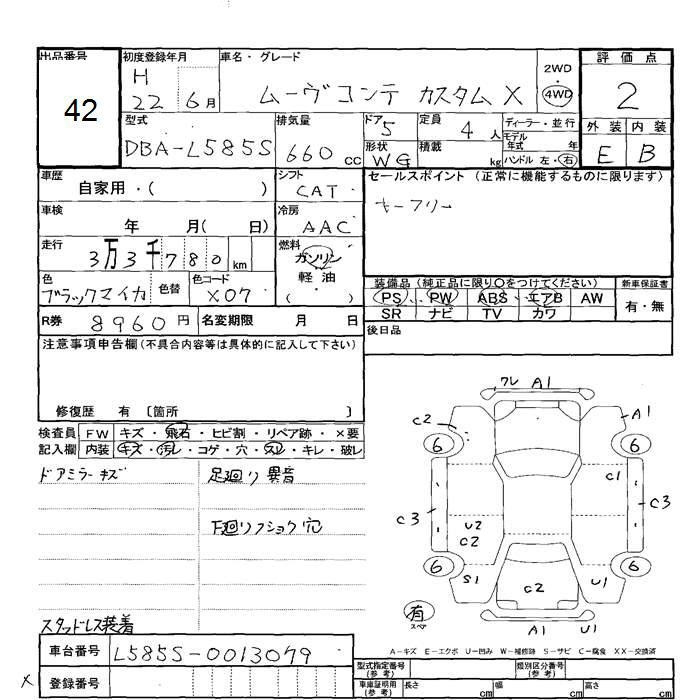 出品番号
42
初度登録年月
H
22 6月
車名・グレード
ムーヴコンテ カスタムX
2WD
・
4WD
評価点
2
外装 内装
E B
型式
DBA-L585S
排気量
660 cc
ドア
5
定員
4 人
形状
WG
積載
kg
ディーラー・並行
モデル
年式 年
ハンドル 左・右
車歴
自家用・( )
シフト
CAT
セールスポイント (正常に機能するものに限ります)
キーフリー
車検
年 月( 日)
冷房
AAC
走行
3万3千780 km
燃料
ガソリン
軽油
( )
色
ブラックマイカ
色替
色コード
X07
装備品 (純正品に限り○をつけてください)
新車保証書
PS PW ABS エアB AW
SR ナビ TV カワ
有・無
R券
8960円
名変期限 月 日
後日品
注意事項申告欄(不具合内容等は具体的に記入して下さい)
修復歴 有 〔箇所 〕
検査員
記入欄
FW キズ・飛石・ヒビ割・リペア跡・×要
内装 キズ・汚レ・コゲ・穴・スレ・キレ・破レ
ドアミラーキズ
足廻り異音
下廻りフショク穴
スタッドレス装着
ワレ A1
C2
A1
6
6
C1
C3
C3
U2
C2
6
6
S1
C2
U1
有
スペア
A1 U1
A-キズ E-エクボ U-凹み W-補修跡 S-サビ C-腐食 XX-交換済
車台番号
L585S-0013079
登録番号
X
型式指定番号
(参考)
類別区分番号
(参考)
車庫証明用
(参考)
長さ cm
幅 cm
高さ cm